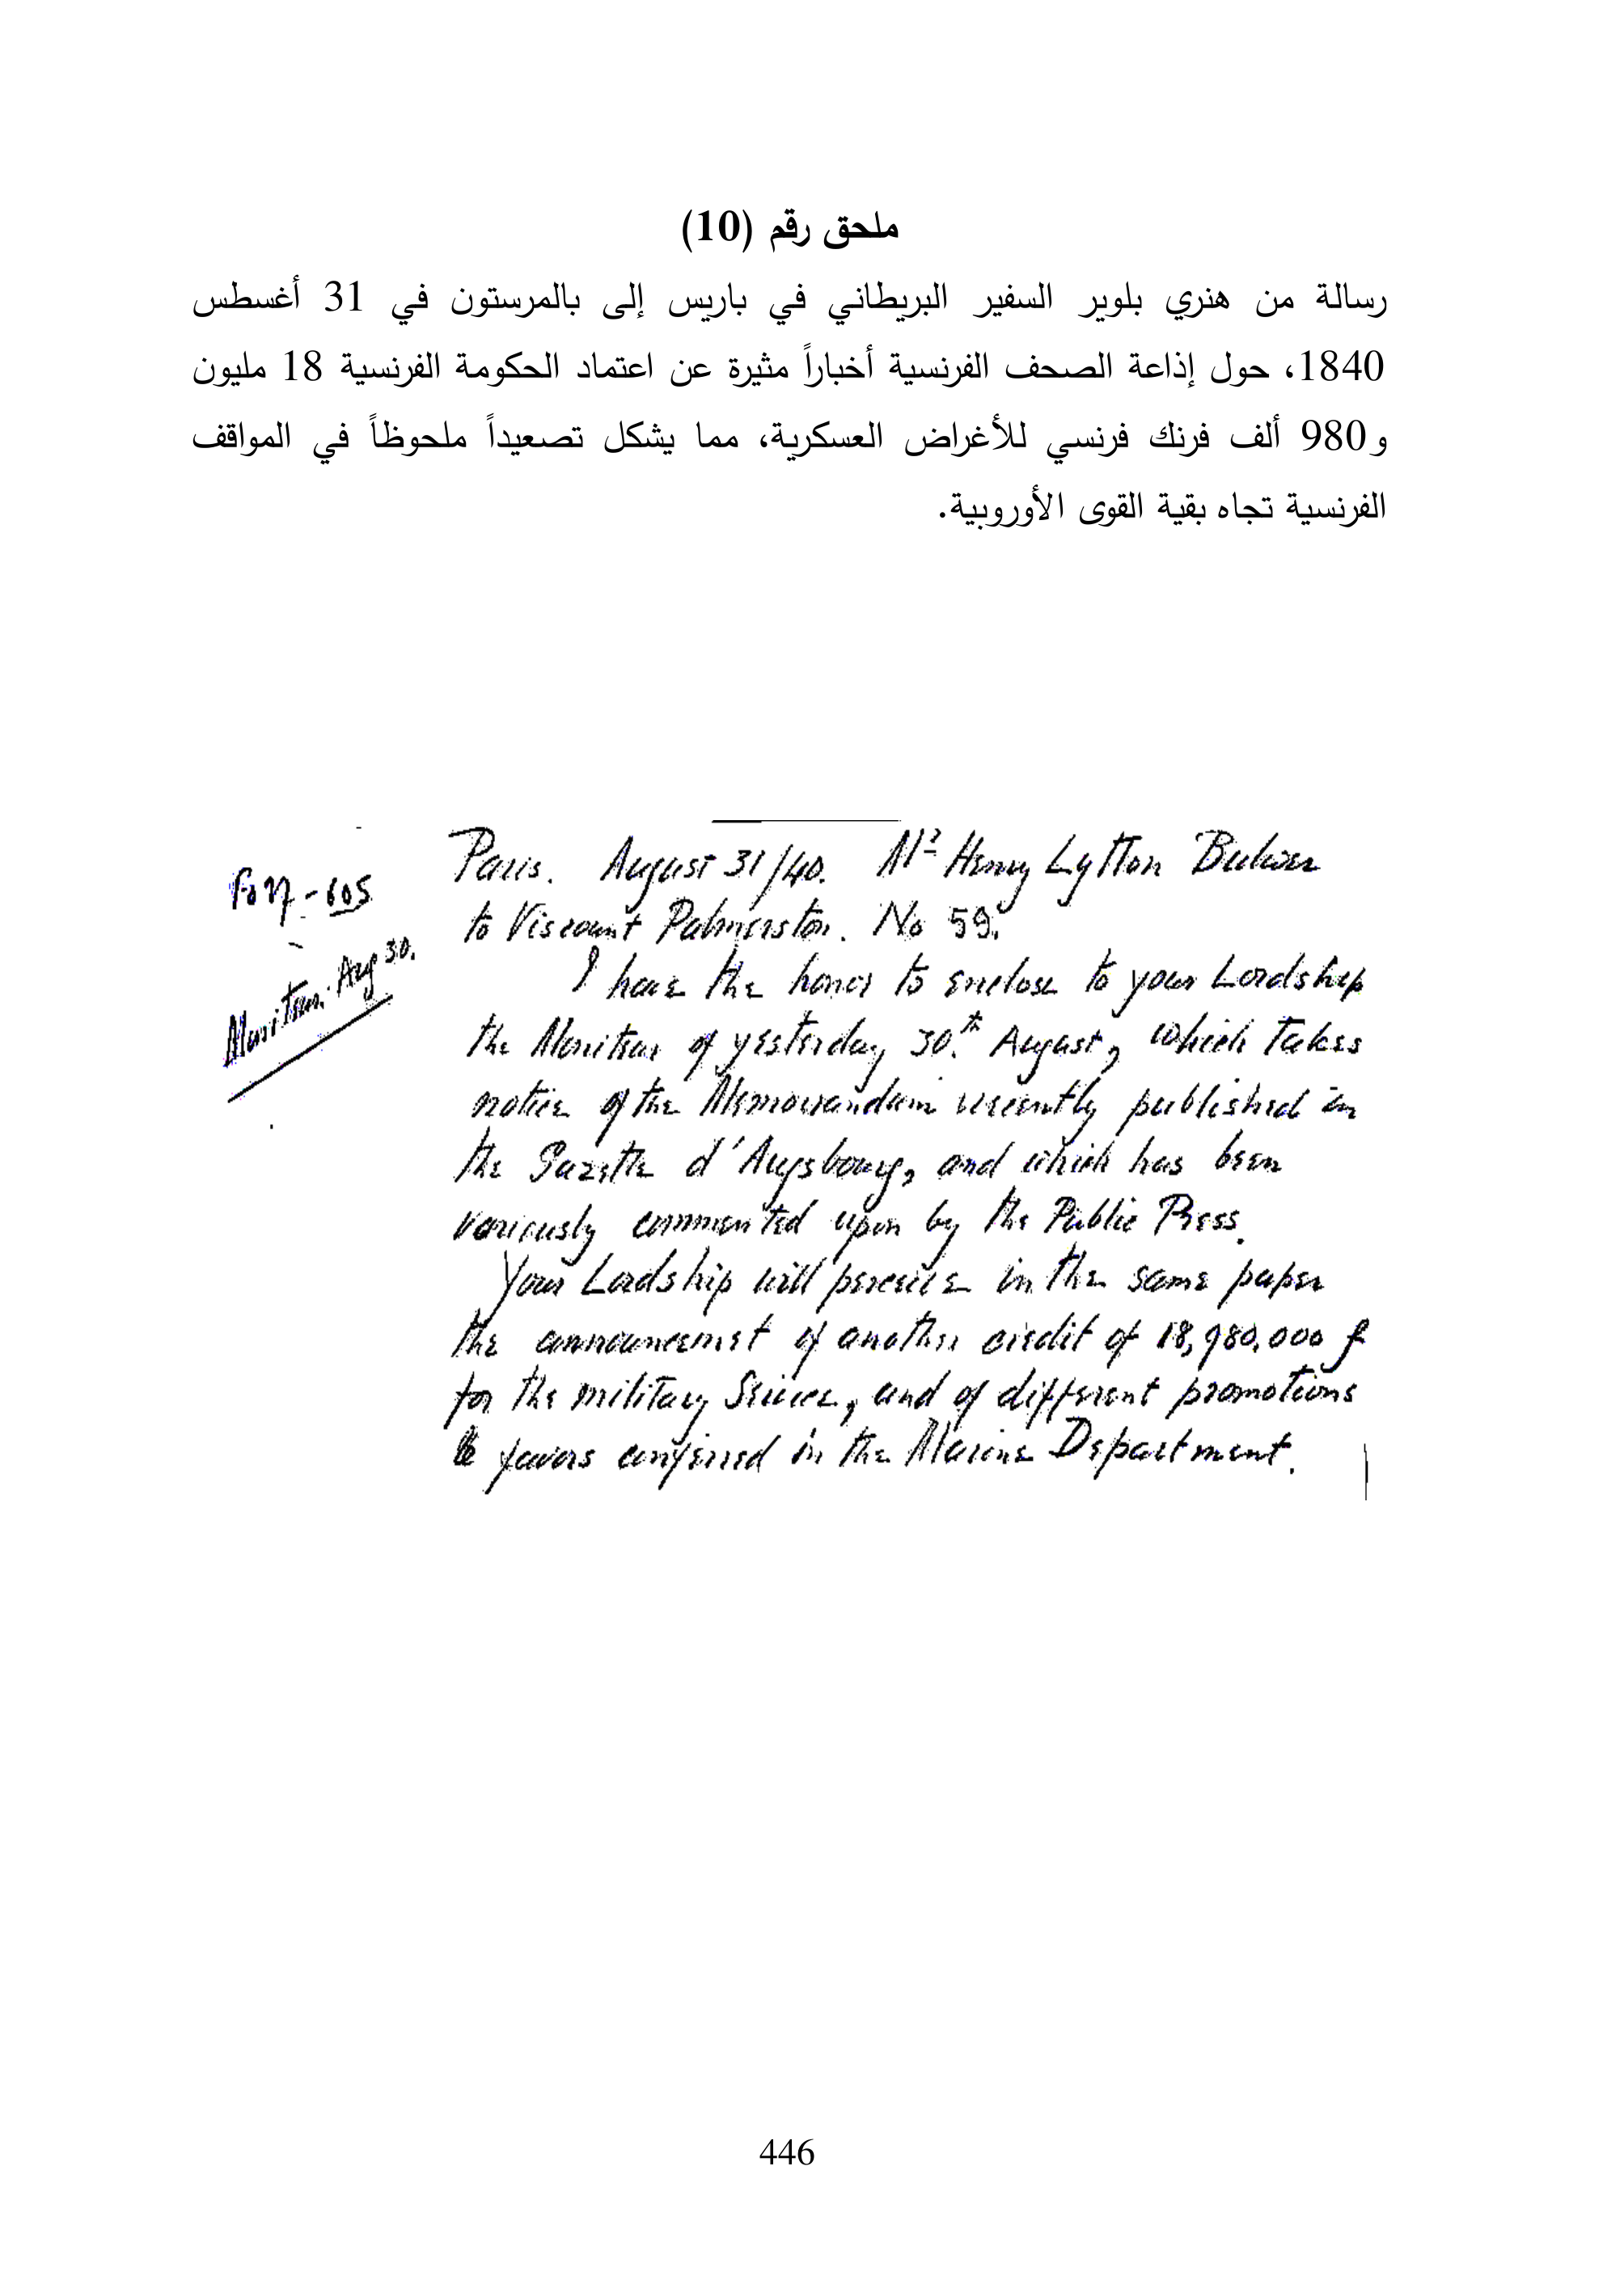 ملحق رقم (10)
رسالة من هنري بلوير السفير البريطاني في باريس إلى بالمرستون في 31 أغسطس
1840، حول إذاعة الصحف الفرنسية أخباراً مثيرة عن اعتماد الحكومة الفرنسية 18 مليون
و980 ألف فرنك فرنسي للأغراض العسكرية، مما يشكل تصعيداً ملحوظاً في المواقف
الفرنسية تجاه بقية القوى الأوروبية.
Fo 27 - 605
Moniteur. Aug 30.
Paris. August 31/40. Mr Henry Lytton Bulwer
to Viscount Palmerston. No 59.
I have the honor to enclose to your Lordship
the Moniteur of yesterday 30th. August, which takes
notice of the Memorandum recently published in
the Gazette d'Augsbourg, and which has been
variously commented upon by the Public Press.
Your Lordship will perceive in the same paper
the announcement of another credit of 18,980,000 f
for the military Service, and of different promotions
& favors conferred in the Marine Department.
446